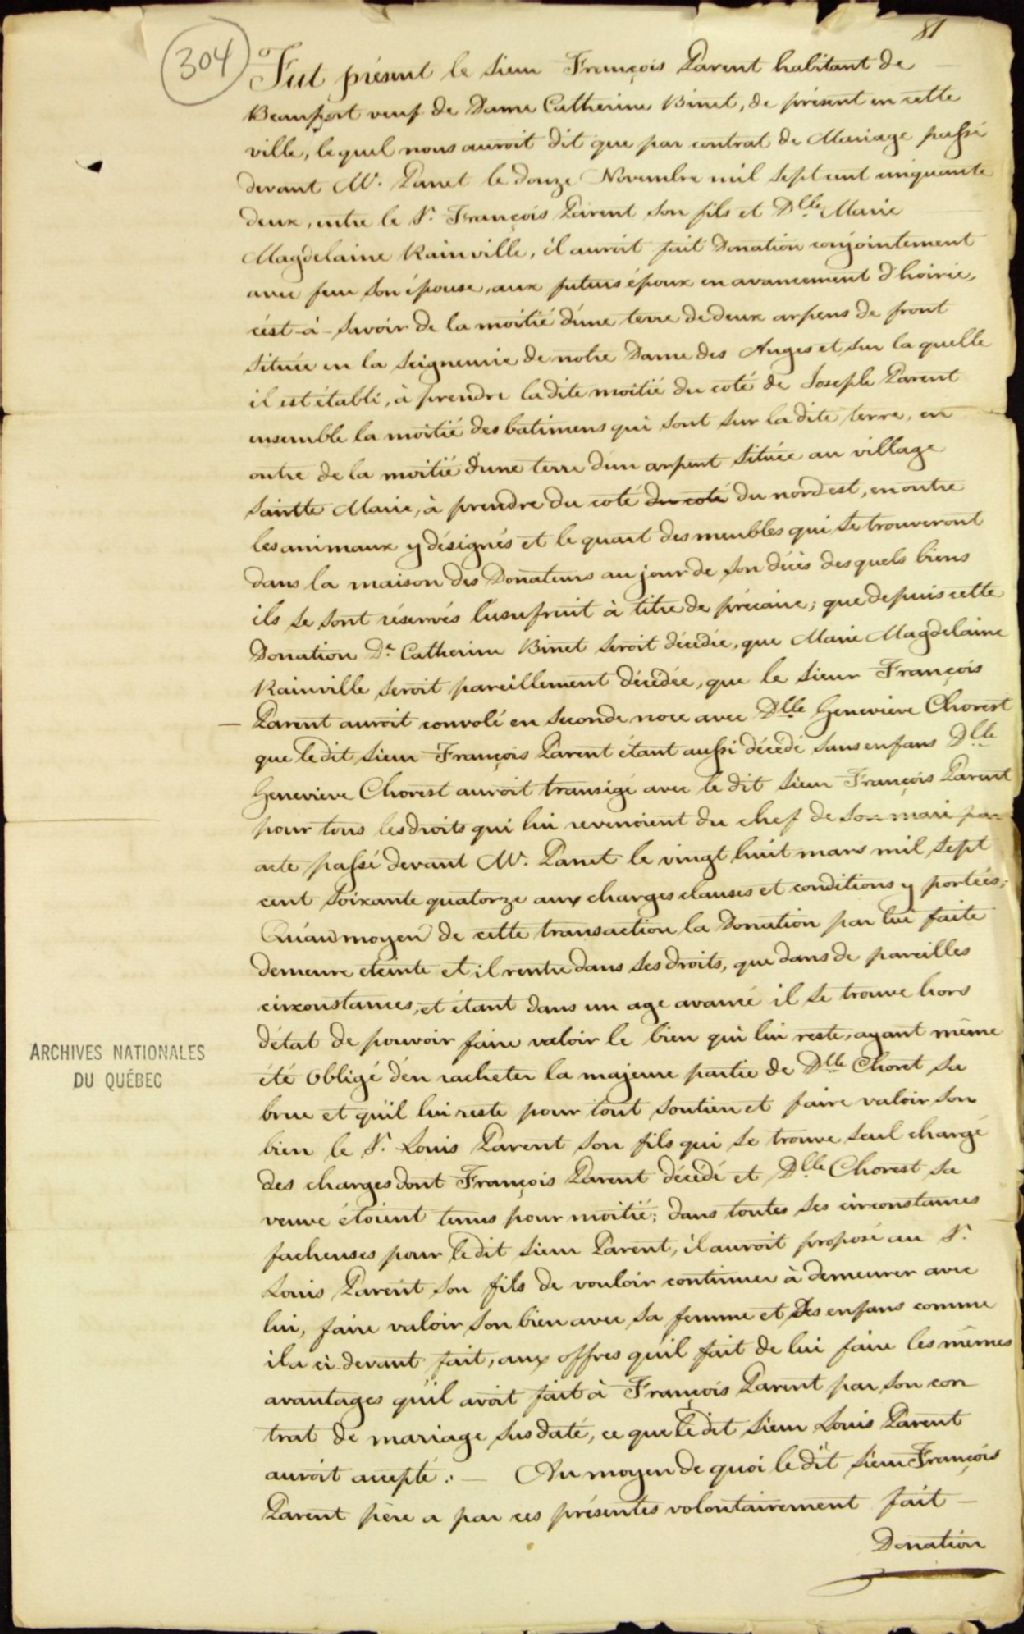 81
304
Fut présent le sieur François Parent habitant de
Beauport veuf de Dame Catherine Binet, de présent en cette
ville, lequel nous auroit dit que par contrat de Mariage passé
devant Me. Panet le douze Novembre mil sept cent cinquante
deux, entre le Sr. François Parent son fils et Dlle Marie
Magdelaine Rainville, il auroit fait Donation conjointement
avec feu son épouse, aux futurs époux en avancement d'hoirie,
c'est-à-savoir de la moitié d'une terre de deux arpens de front
située en la Seigneurie de notre Dame des Anges et sur la quelle
il est établi, à prendre la dite moitié du coté de Joseph Parent
ensemble la moitié des batimens qui sont sur la dite terre, en
outre de la moitié d'une terre d'un arpent située au village
Saintte Marie, à prendre du coté du coté du nord est, en outre
les animaux y désignés et le quart des meubles qui se trouveront
dans la maison des Donateurs au jour de son décès desquels biens
ils se sont réservés l'usufruit à titre de précaire; que depuis cette
Donation De Catherine Binet seroit décédée, que Marie Magdelaine
Rainville seroit pareillement décédée, que le sieur François
Parent auroit convolé en seconde noce avec Dlle Genevieve Chorest
que le dit sieur François Parent étant aussi décédé sans enfans Dlle
Genevieve Chorest auroit transigé avec le dit sieur François Parent
pour tous les droits qui lui revenoient du chef de son mari par
acte passé devant Me. Panet le vingt huit mars mil sept
cent soixante quatorze aux charges clauses et conditions y portées;
Qu'au moyen de cette transaction la Donation par lui faite
demeure eteinte et il rentre dans ses droits, que dans de pareilles
circonstances, et étant dans un age avancé il se trouve hors
d'état de pouvoir faire valoir le bien qui lui reste, ayant même
été obligé d'en racheter la majeure partie de Dlle Choret sa
brue et qu'il lui reste pour tout soutien et faire valoir son
bien le Sr. Louis Parent son fils qui se trouve seul chargé
des charges dont François Parent décédé et Dlle Chorest sa
veuve étoient tenus pour moitié; dans toutes ses circonstances
facheuses pour le dit sieur Parent, il auroit proposé au Sr.
Louis Parent son fils de vouloir continuer à demeurer avec
lui, faire valoir son bien avec sa femme et ses enfans comme
il a ci-devant fait, aux offres qu'il fait de lui faire les mêmes
avantages qu'il avoit fait à François Parent par son con
trat de mariage susdaté, ce que le dit sieur Louis Parent
auroit accepté. — Au moyen de quoi le dit sieur François
Parent père a par ces présentes volontairement fait
Donation
ARCHIVES NATIONALES
DU QUÉBEC